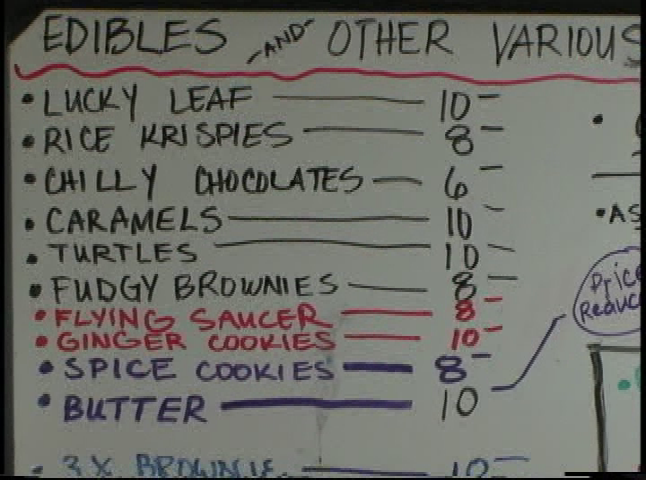 EDIBLES -AND- OTHER VARIOUS
• LUCKY LEAF — 10 –
• RICE KRISPIES — 8 –
• CHILLY CHOCOLATES — 6 –
• CARAMELS — 10 –
• TURTLES — 10 –
• FUDGY BROWNIES — 8 –
• FLYING SAUCER — 8 –
• GINGER COOKIES — 10 –
• SPICE COOKIES — 8 –
• BUTTER — 10
• 3X BROWNIE — 10 –
• AS
Price
Reduc